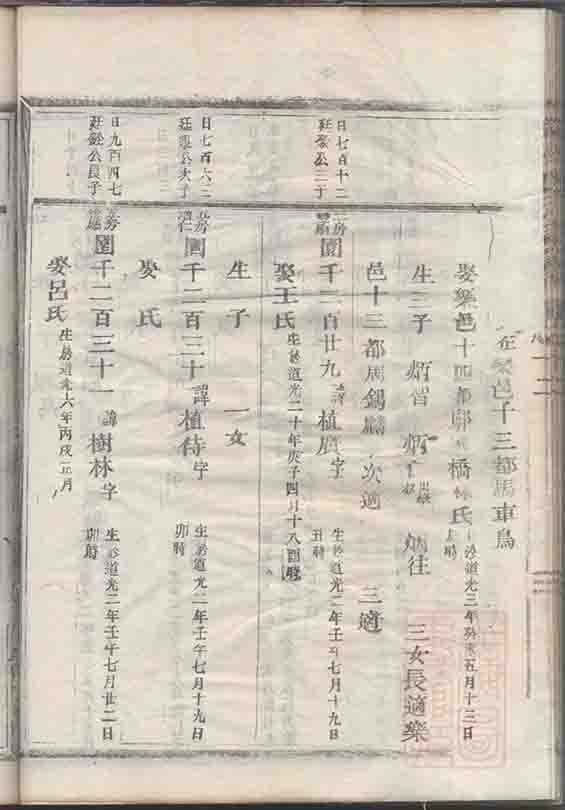 在樂邑十三都馬車鳥
娶樂邑十四都 橋林氏 道光三年癸未五月十三日 時
生三子 炳智 炳 炳往 三女長適樂
邑十三都周錫麟 次適 三適
日七百十三
廷 公三子
房 園千二百廿九 諱植廣字 生於道光二年壬午七月十九日丑時
娶王氏 生於道光二十年庚子四月十八酉時
生子 一女
日七百六二
廷 公大子
房 仁 園千二百三十 諱植侍字 生於道光二年壬午七月十九日卯時
娶 氏
日九百四七
廷 公長子
房 園千二百三十一 諱樹林字 生於道光二年壬午七月廿二日卯時
娶呂氏 生於道光六年丙戌正月